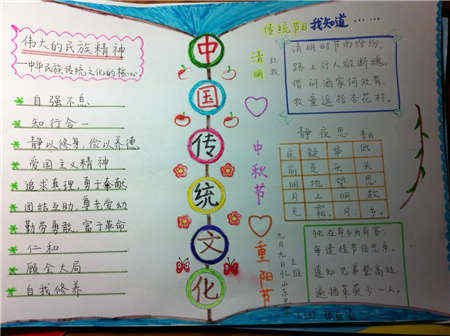 伟大的民族精神
——中华民族传统文化的核心
自强不息
知行合一
静以修身,俭以养德
爱国主义精神
追求真理,勇于奉献
团结互助,尊老爱幼
勤劳勇敢,富于革命
仁和
顾全大局
自我修养
中国传统文化
传统节日我知道……
清明
清明时节雨纷纷,
路上行人欲断魂。
借问酒家何处有,
牧童遥指杏花村。
中秋节
静夜思
重阳节
九月九日忆山东兄弟
独在异乡为异客,
每逢佳节倍思亲。
遥知兄弟登高处,
遍插茱萸少一人。